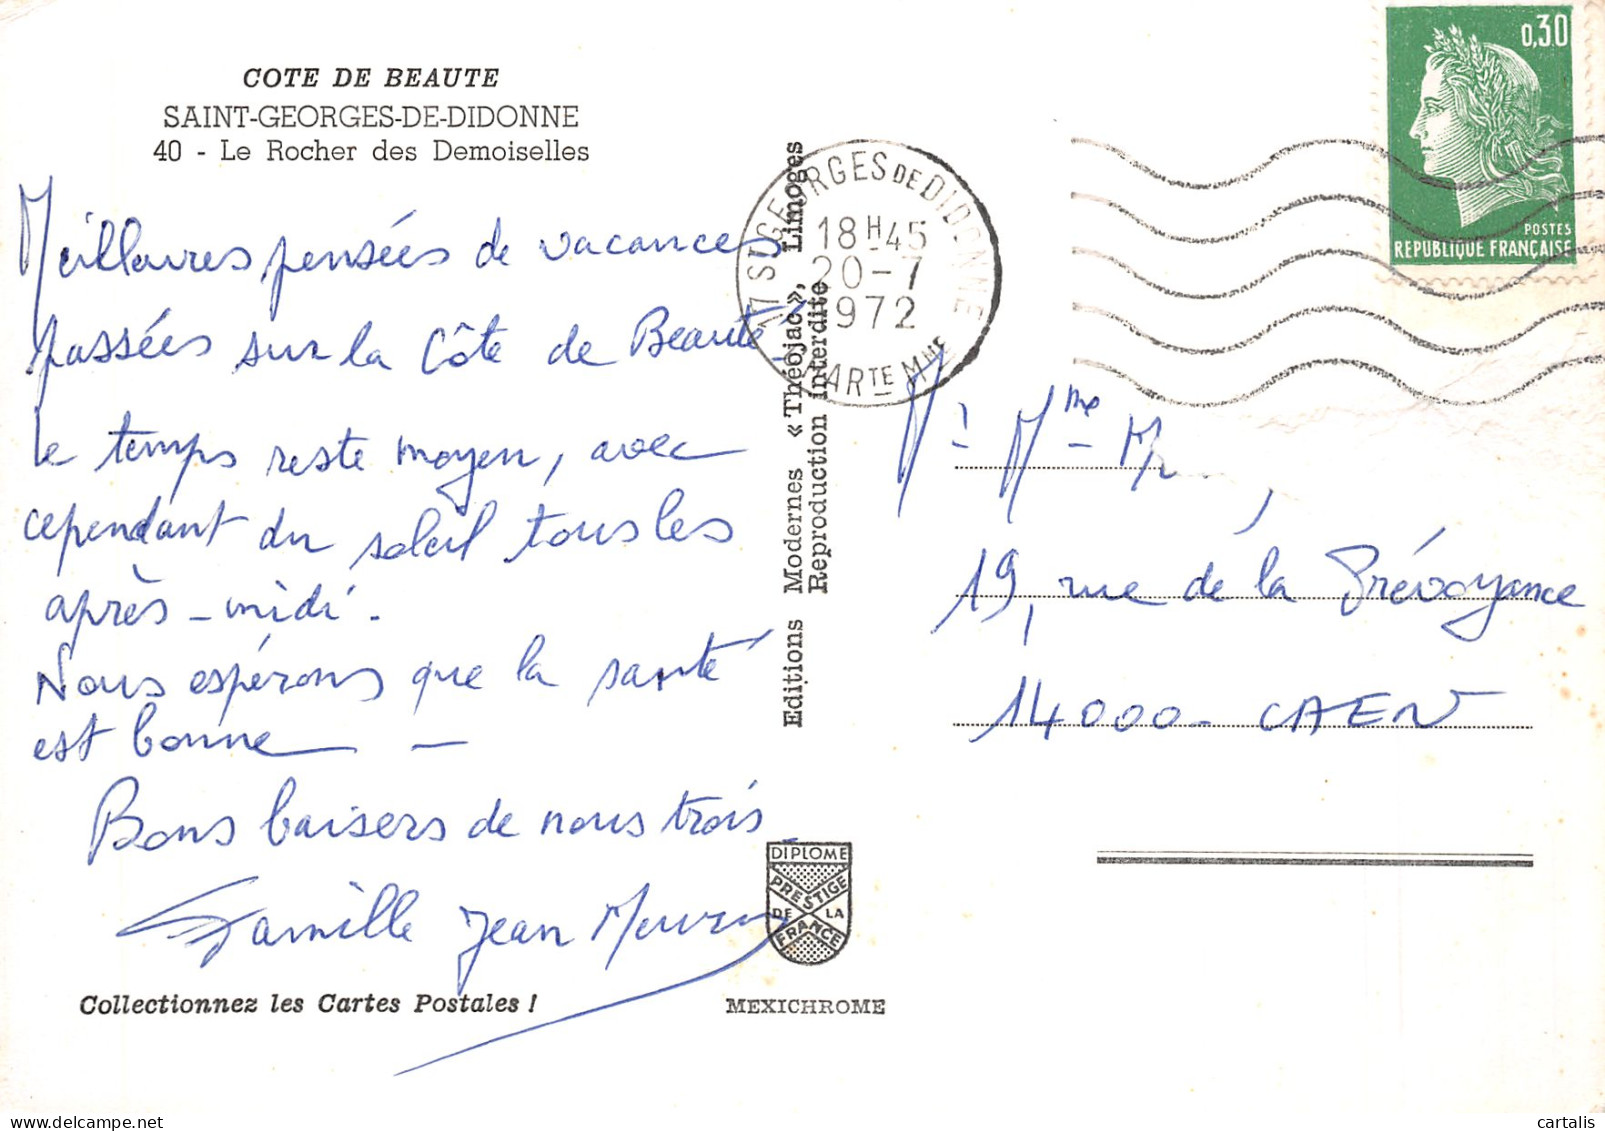 COTE DE BEAUTE
SAINT-GEORGES-DE-DIDONNE
40 - Le Rocher des Demoiselles
Meilleures pensées de vacances
passées sur la Côte de Beauté.
Le temps reste moyen, avec
cependant du soleil tous les
après-midi.
Nous espérons que la santé
est bonne —
Bons baisers de nous trois
Famille Jean
Collectionnez les Cartes Postales !
Editions Modernes « Théojac », Limoges
Reproduction interdite
DIPLOME
PRESTIGE
DE LA
FRANCE
MEXICHROME
17 ST GEORGES DE DIDONNE
18H45
20-7
1972
CHARTE MME
0,30
POSTES
REPUBLIQUE FRANÇAISE
Mr Mme
19, rue de la Prévoyance
14000 - CAEN
cartalis